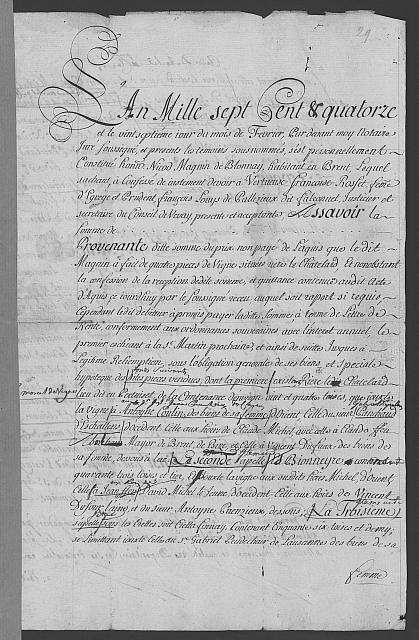 29
L'An Mille sept Cent & quatorze
et le vint septieme jour du mois de Fevrier, Par devant moy Notaire
Juré soussigné, et presents les temoins sousnommés, s'est personnellement
Constitué hono. Nicod Magnin de Blonnay, habitant en Brent, Lequel
sachant, a Confessé de justement devoir à Vertueuse Françoise Rosset, feme
d'Egrege et Prudent François Louys de Palézieux dit falconnet, Justicier et
secretaire du Conseil de Vevay, presente et acceptante, Assavoir la
somme de
Provenante ditte somme du prix non payé de l'aquis que le dit
Magnin à fait de quatre pieces de Vigne situées riere le Chatelard. Et nonobstant
la confession de la reception de ditte somme, et quittance contenue audit Acte
d'Aquis ce jourdhuy par le soussigné receu auquel soit raport si requis,
Cependant le dit debiteur a promis payer la ditte Somme à forme de Lettre de
Rente, conformement aux ordonnances souveraines avec l'interest annuel, le
premier echéant à la St Martin prochaine et ainsi de suitte Jusques à
Legitime Reemption, sous l'obligation generale de ses biens et Speciale
hypoteque des dites pieces vendues, dont la premiere existe Riere le Chatelard
lieu dit en de la Contenance d'environ huit et quatre toises, que jouxte
la Vigne d'Antoyne des biens de sa femme d'Orient Celle du sieur
d'occident Celle aux hoirs de Claude Michel, avec celle à
Mayor de Brent, de Bize, et Celle à Vincent Dufoux des biens de
sa femme, devers le Lac. La seconde appellé Bionneyre contenant
quarante trois toises et tier, jouxte la vigne aux nobles hoirs Michel d'orient,
Celle à Jean David Michel le Jeune d'occident Celle aux hoirs de Vincent
Dufour, et du sieur Antoyne Chenevieux, dessous; La Troisieme
appellé les Crettes soit Crétta finnay, Contenant Cinquante six toises et demy,
se limittant jouxte Celle du Sr Gabriel de Lausanne des biens de sa
femme